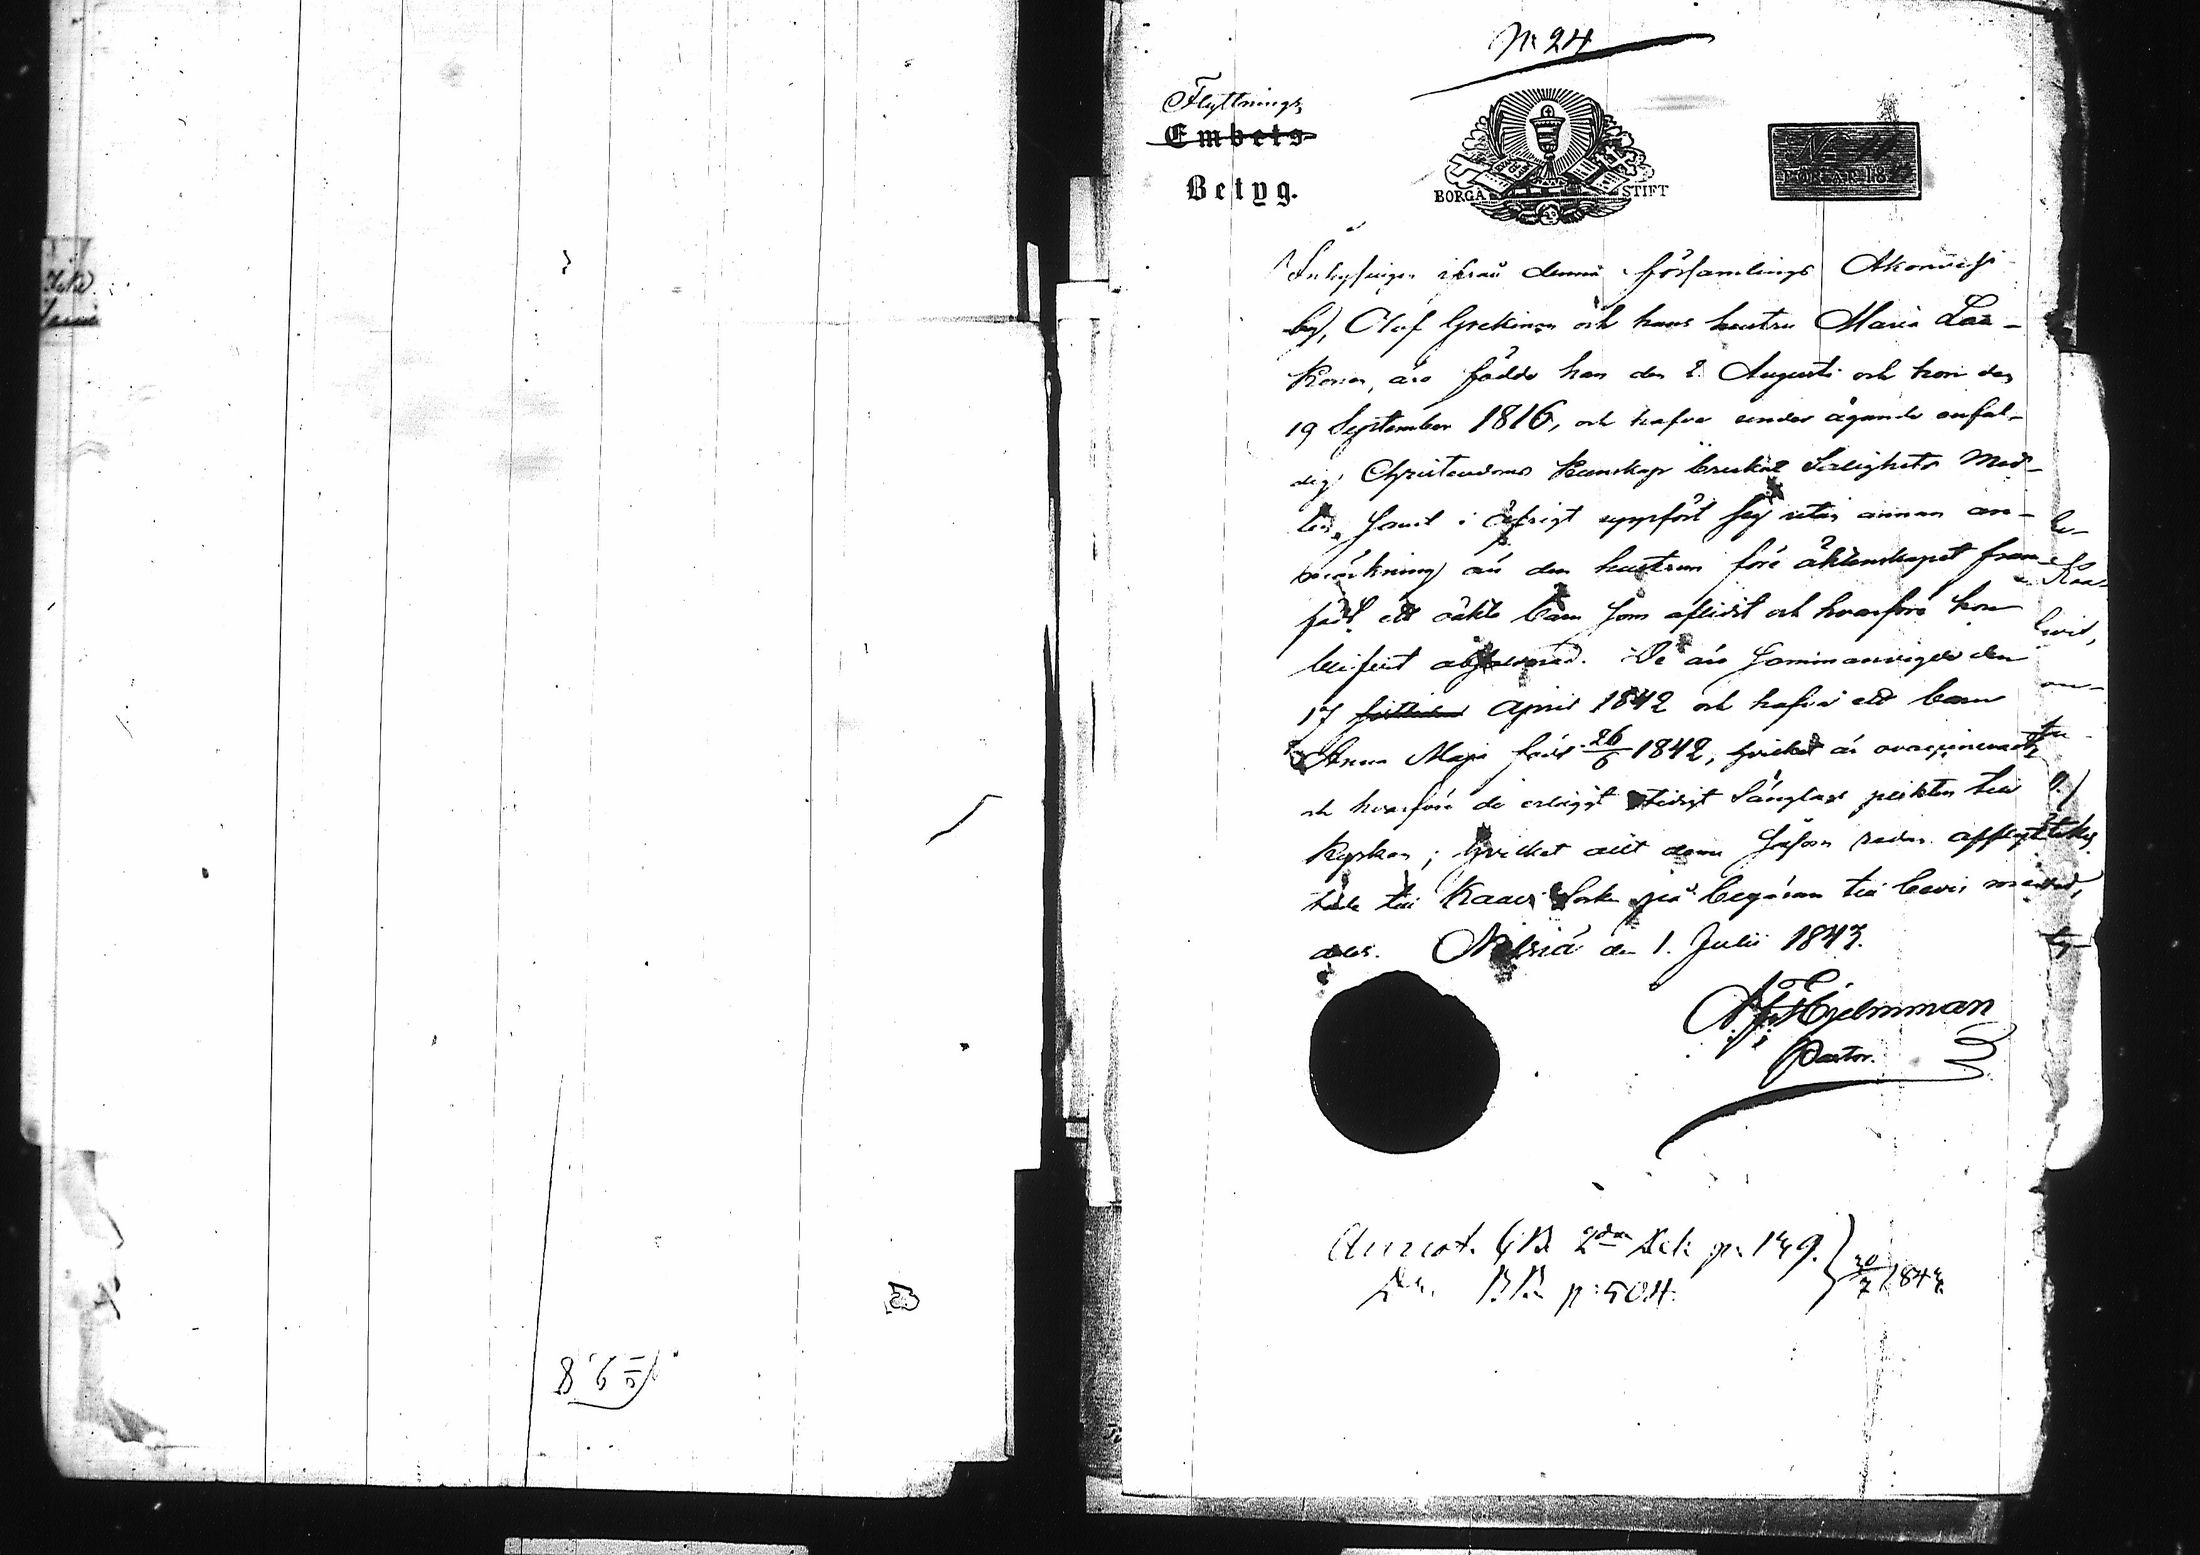 N: 24
Flyttnings
Embets-
Betyg.
BORGÅ STIFT
Inhysingen ifrån denna församlings Akonvesi
by, Olof Greckinen och hans hustru Maria Laa-
konen, äro födde han den 2 Augusti och hon den
19 September 1816, och hafva under ägande enfal-
dig Christendoms kunskap brukat Salighets Med-
len, samt i öfrigt uppfört sig utan annan an-
märkning än den hustrun före äktenskapet fram-
födt ett oäkta barn som aflidit och hvarföre hon
blifvit absolverad. De äro sammanvigde den
17 April 1842 och hafva ett barn
Anna Maja född 26/6 1842, hvilket är ovaccineradt
och hvarföre de erlagt stadgt Sänglags plikten till
Kyrkan; hvilket allt dem såsom redan afflyt-
tade till Kaavi Sokn på begäran till bevis medde-
las. Nilsiä den 1. Julii 1843.
Hjelmman
Pastor.
Annot. CB 2dra Del. p. 149.
Do. BB p: 504.
20/7 1843.
865